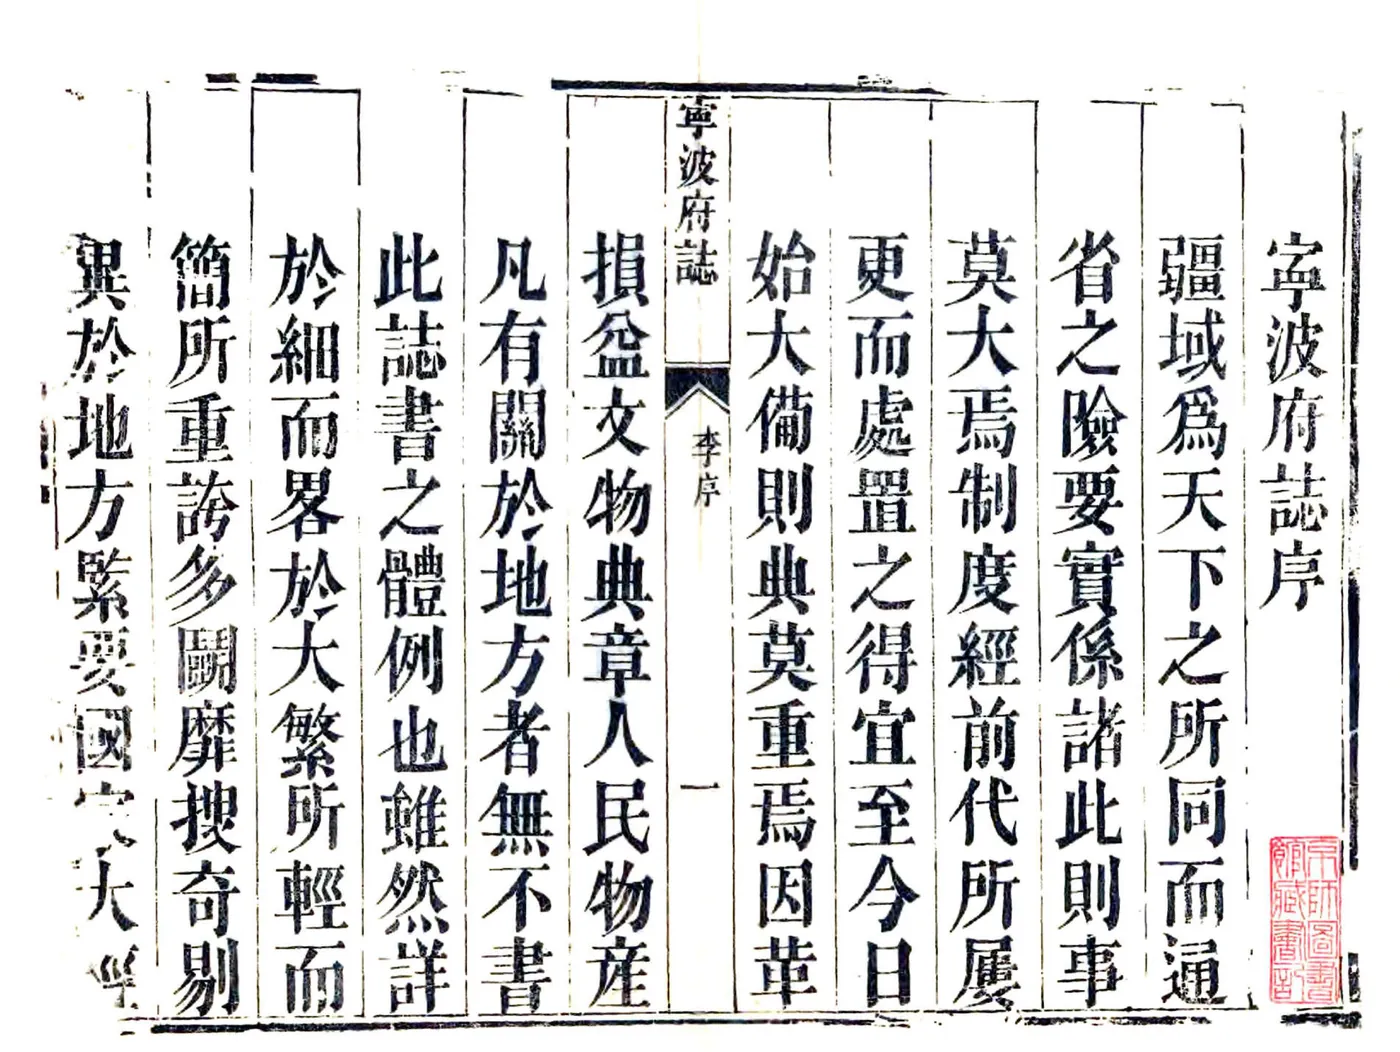 寧波府誌序
疆域爲天下之所同而通
省之險要實係諸此則事
莫大焉制度經前代所屢
更而處置之得宜至今日
始大備則典莫重焉因革
寧波府誌
李序
一
損益文物典章人民物產
凡有關於地方者無不書
此誌書之體例也雖然詳
於細而畧於大繁所輕而
簡所重誇多鬭靡搜奇剔
異於地方緊要國家大經
京師圖書
館藏書記